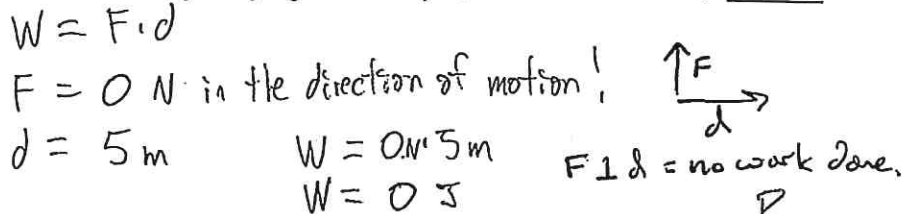 W = F·d
F = 0 N in the direction of motion!
F
d = 5 m
d
W = 0N·5m
F ⊥ d = no work done.
W = 0 J